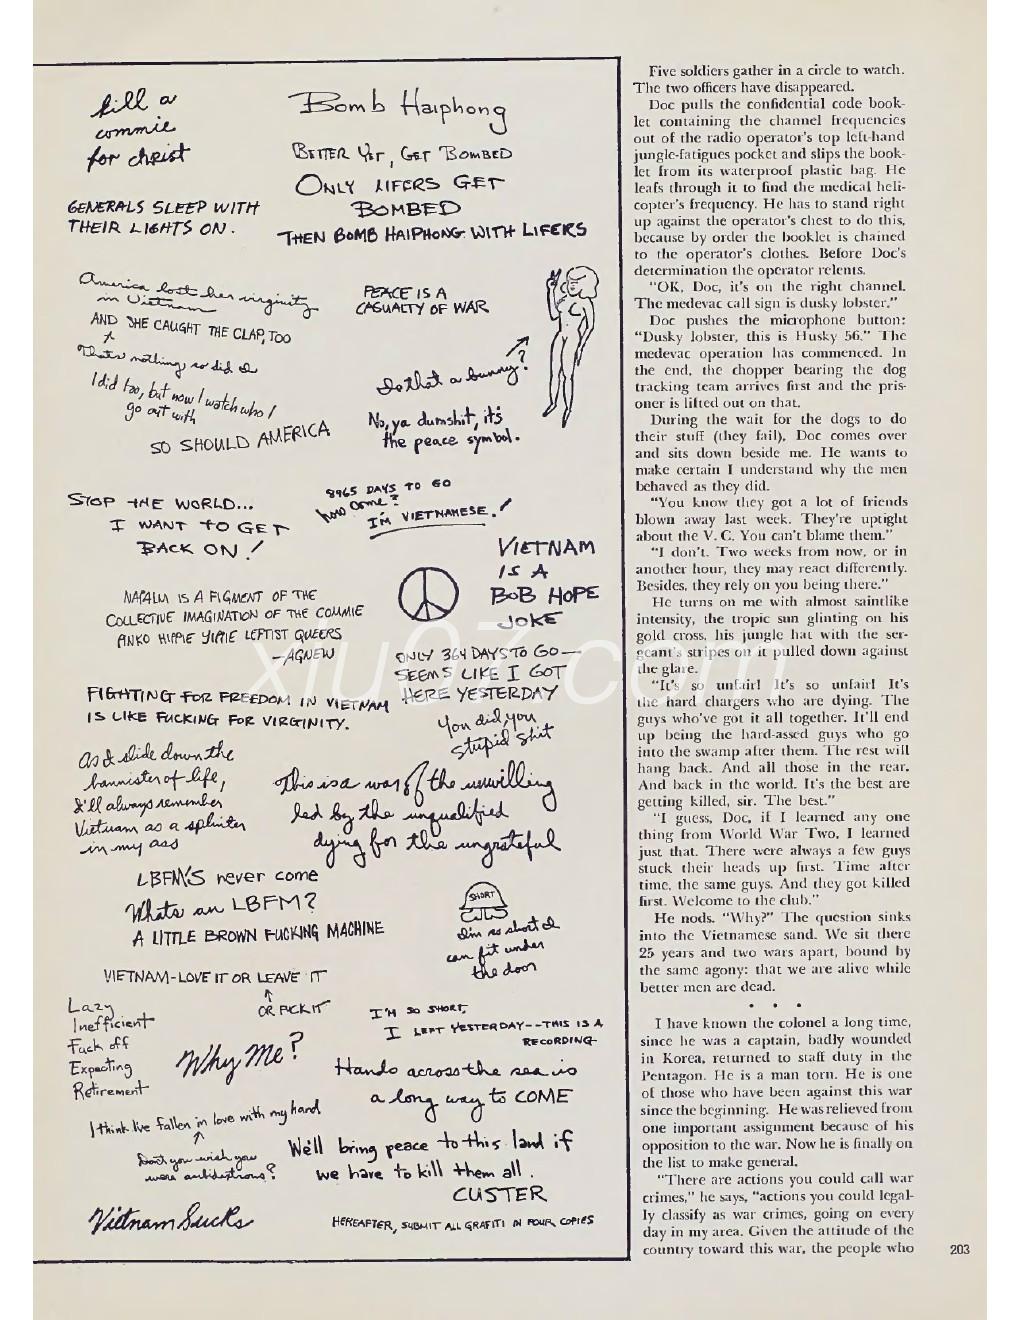 kill a
commie
for christ
Bomb Haiphong
BETTER YET, GET BOMBED
ONLY LIFERS GET
BOMBED
THEN BOMB HAIPHONG WITH LIFERS
GENERALS SLEEP WITH
THEIR LIGHTS ON.
America lost her virginity
in Vietnam
AND SHE CAUGHT THE CLAP, TOO
That's nothing, so did I
I did too, but now I watch who I
go out with
SO SHOULD AMERICA
PEACE IS A
CASUALTY OF WAR
Is that a bunny?
No, ya dumshit, it's
the peace symbol.
STOP THE WORLD...
I WANT TO GET
BACK ON!
8965 DAYS TO GO
how come?
I'M VIETNAMESE!
VIETNAM
IS A
BOB HOPE
JOKE
NAPALM IS A FIGMENT OF THE
COLLECTIVE IMAGINATION OF THE COMMIE
PINKO HIPPIE YIPPIE LEFTIST QUEERS
—AGNEW
ONLY 364 DAYS TO GO—
SEEMS LIKE I GOT
HERE YESTERDAY
You did, you
stupid shit
FIGHTING FOR FREEDOM IN VIETNAM
IS LIKE FUCKING FOR VIRGINITY.
As I slide down the
bannister of life,
I'll always remember
Vietnam as a splinter
in my ass
This is a war of the unwilling
led by the unqualified
dying for the ungrateful
LBFM'S never come
Whats an LBFM?
A LITTLE BROWN FUCKING MACHINE
SHORT
I'm so short I
can fit under
the door
VIETNAM-LOVE IT OR LEAVE IT
OR FUCK IT
Lazy
Inefficient
Fuck off
Expecting
Retirement
Why Me?
I'M SO SHORT,
I LEFT YESTERDAY--THIS IS A
RECORDING-
Hands across the sea is
a long way to COME
I think I've fallen in love with my hand
Don't you wish you
were ambidextrous?
We'll bring peace to this land if
we have to kill them all.
CUSTER
Vietnam Sucks
HEREAFTER, SUBMIT ALL GRAFITI IN FOUR COPIES
Five soldiers gather in a circle to watch.
The two officers have disappeared.
Doc pulls the confidential code book-
let containing the channel frequencies
out of the radio operator's top left-hand
jungle-fatigues pocket and slips the book-
let from its waterproof plastic bag. He
leafs through it to find the medical heli-
copter's frequency. He has to stand right
up against the operator's chest to do this,
because by order the booklet is chained
to the operator's clothes. Before Doc's
determination the operator relents.
"OK, Doc, it's on the right channel.
The medevac call sign is dusky lobster."
Doc pushes the microphone button:
"Dusky lobster, this is Husky 56." The
medevac operation has commenced. In
the end, the chopper bearing the dog
tracking team arrives first and the pris-
oner is lifted out on that.
During the wait for the dogs to do
their stuff (they fail), Doc comes over
and sits down beside me. He wants to
make certain I understand why the men
behaved as they did.
"You know they got a lot of friends
blown away last week. They're uptight
about the V. C. You can't blame them."
"I don't. Two weeks from now, or in
another hour, they may react differently.
Besides, they rely on you being there."
He turns on me with almost saintlike
intensity, the tropic sun glinting on his
gold cross, his jungle hat with the ser-
geant's stripes on it pulled down against
the glare.
"It's so unfair! It's so unfair! It's
the hard chargers who are dying. The
guys who've got it all together. It'll end
up being the hard-assed guys who go
into the swamp after them. The rest will
hang back. And all those in the rear.
And back in the world. It's the best are
getting killed, sir. The best."
"I guess, Doc, if I learned any one
thing from World War Two, I learned
just that. There were always a few guys
stuck their heads up first. Time after
time, the same guys. And they got killed
first. Welcome to the club."
He nods. "Why?" The question sinks
into the Vietnamese sand. We sit there
25 years and two wars apart, bound by
the same agony: that we are alive while
better men are dead.
• • •
I have known the colonel a long time,
since he was a captain, badly wounded
in Korea, returned to staff duty in the
Pentagon. He is a man torn. He is one
of those who have been against this war
since the beginning. He was relieved from
one important assignment because of his
opposition to the war. Now he is finally on
the list to make general.
"There are actions you could call war
crimes," he says, "actions you could legal-
ly classify as war crimes, going on every
day in my area. Given the attitude of the
country toward this war, the people who
203
xiu07.com